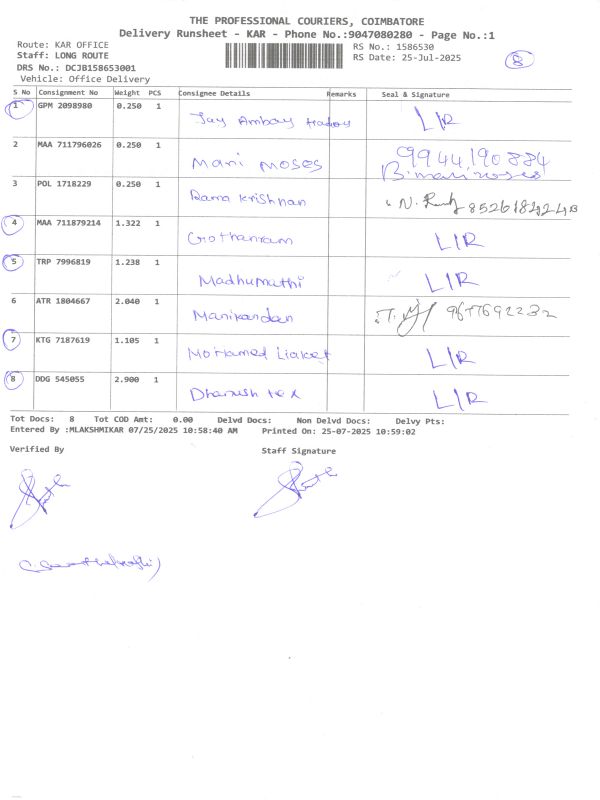 THE PROFESSIONAL COURIERS, COIMBATORE
Delivery Runsheet - KAR - Phone No.:9047080280 - Page No.:1
Route: KAR OFFICE RS No.: 1586530
Staff: LONG ROUTE RS Date: 25-Jul-2025 8
DRS No.: DCJB158653001
Vehicle: Office Delivery
S No Consignment No Weight PCS Consignee Details Remarks Seal & Signature
1 GPM 2098980 0.250 1 Jay Ambay L/R
2 MAA 711796026 0.250 1 Mani Moses 9944190884
B. mani moses
3 POL 1718229 0.250 1 Rama Krishnan N.
4 MAA 711879214 1.322 1 Gothanram L/R
5 TRP 7996819 1.238 1 Madhumathi L/R
6 ATR 1804667 2.040 1 Manikandan
7 KTG 7187619 1.105 1 Mohamed Liaket L/R
8 DDG 545055 2.900 1 Dhanush tex L/R
Tot Docs: 8 Tot COD Amt: 0.00 Delvd Docs: Non Delvd Docs: Delvy Pts:
Entered By :MLAKSHMIKAR 07/25/2025 10:58:40 AM Printed On: 25-07-2025 10:59:02
Verified By Staff Signature